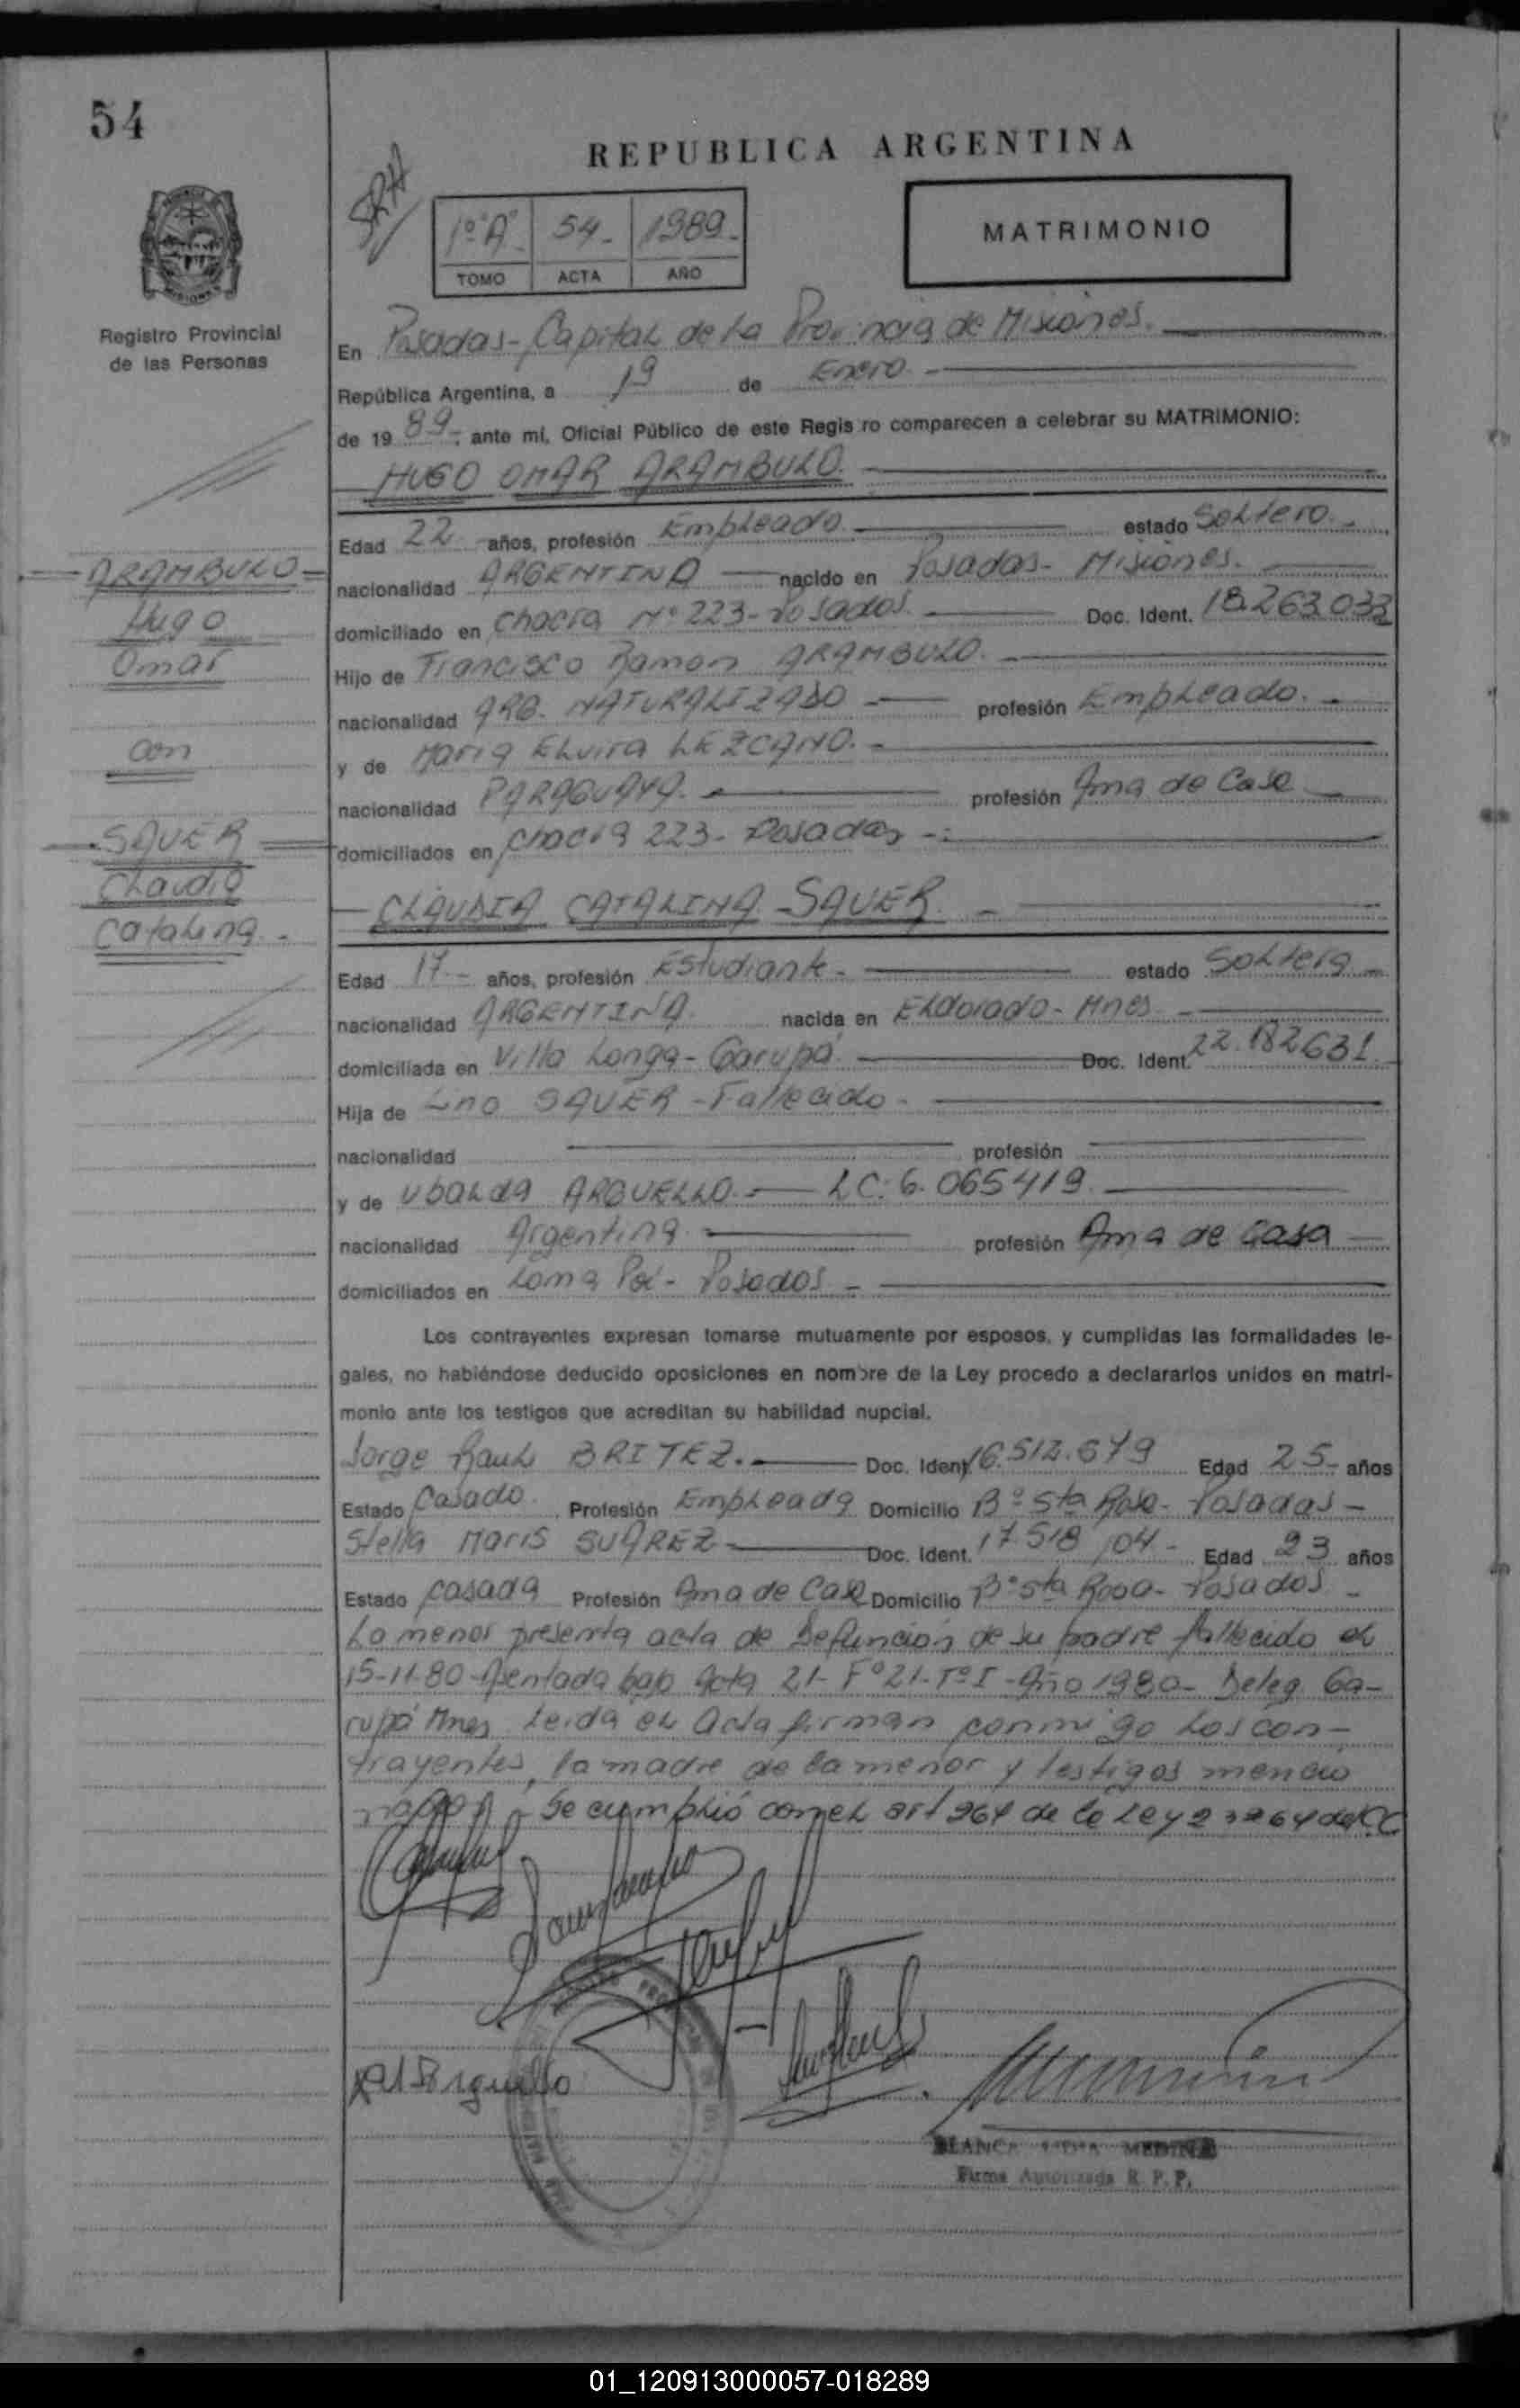 54
REPUBLICA ARGENTINA
1º "A" - 54 - 1989 -
TOMO ACTA AÑO
MATRIMONIO
Registro Provincial
de las Personas
En Posadas - Capital de la Provincia de Misiones. -
República Argentina, a 19 de Enero -
de 19 89 -, ante mí, Oficial Público de este Regis ro comparecen a celebrar su MATRIMONIO:
HUGO OMAR ARAMBULO.
Edad 22 años, profesión Empleado estado Soltero -
ARAMBULO
Hugo
Omar
con
SAUER
Claudia
Catalina -
nacionalidad ARGENTINA nacido en Posadas - Misiones.
domiciliado en Chacra Nº 223 - Posadas Doc. Ident. 18.263.033
Hijo de Francisco Ramon ARAMBULO.
nacionalidad ARG. NATURALIZADO profesión Empleado. -
y de Maria Elvira LEZCANO. -
nacionalidad PARAGUAYA. profesión Ama de Casa
domiciliados en Chacra 223 - Posadas -
CLAUDIA CATALINA SAUER. -
Edad 17 - años, profesión Estudiante - estado Soltera -
nacionalidad ARGENTINA nacida en Eldorado - Mnes -
domiciliada en Villa Longa - Garupá Doc. Ident. 22.182631
Hija de Lino SAUER - Fallecido -
nacionalidad profesión
y de Ubalda ARGUELLO. - LC: 6.065419
nacionalidad Argentina profesión Ama de Casa
domiciliados en Loma Poi - Posadas -
Los contrayentes expresan tomarse mutuamente por esposos, y cumplidas las formalidades le-
gales, no habiéndose deducido oposiciones en nombre de la Ley procedo a declararlos unidos en matri-
monio ante los testigos que acreditan su habilidad nupcial.
Jorge Raul BRITEZ. Doc. Ident. 16.512.679 Edad 25 - años
Estado Casado Profesión Empleado Domicilio Bº Sta Rosa - Posadas -
Stella Maris SUAREZ Doc. Ident. 17518 104 - Edad 23 años
Estado casada Profesión Ama de Casa Domicilio Bº Sta Rosa - Posadas -
La menor presenta acta de Defunción de su padre fallecido el
15-11-80 - Asentada bajo Acta 21 - Fº 21 - Tº I - Año 1980 - Deleg. Ga-
rupá Mnes. Leida el Acta firman conmigo los con-
trayentes, la madre de la menor y testigos mencio
nados - Se cumplió con el art 264 de la Ley 23264 del C.C
BLANCA MEDINA
Firma Autorizada R. P. P.
01_120913000057-018289